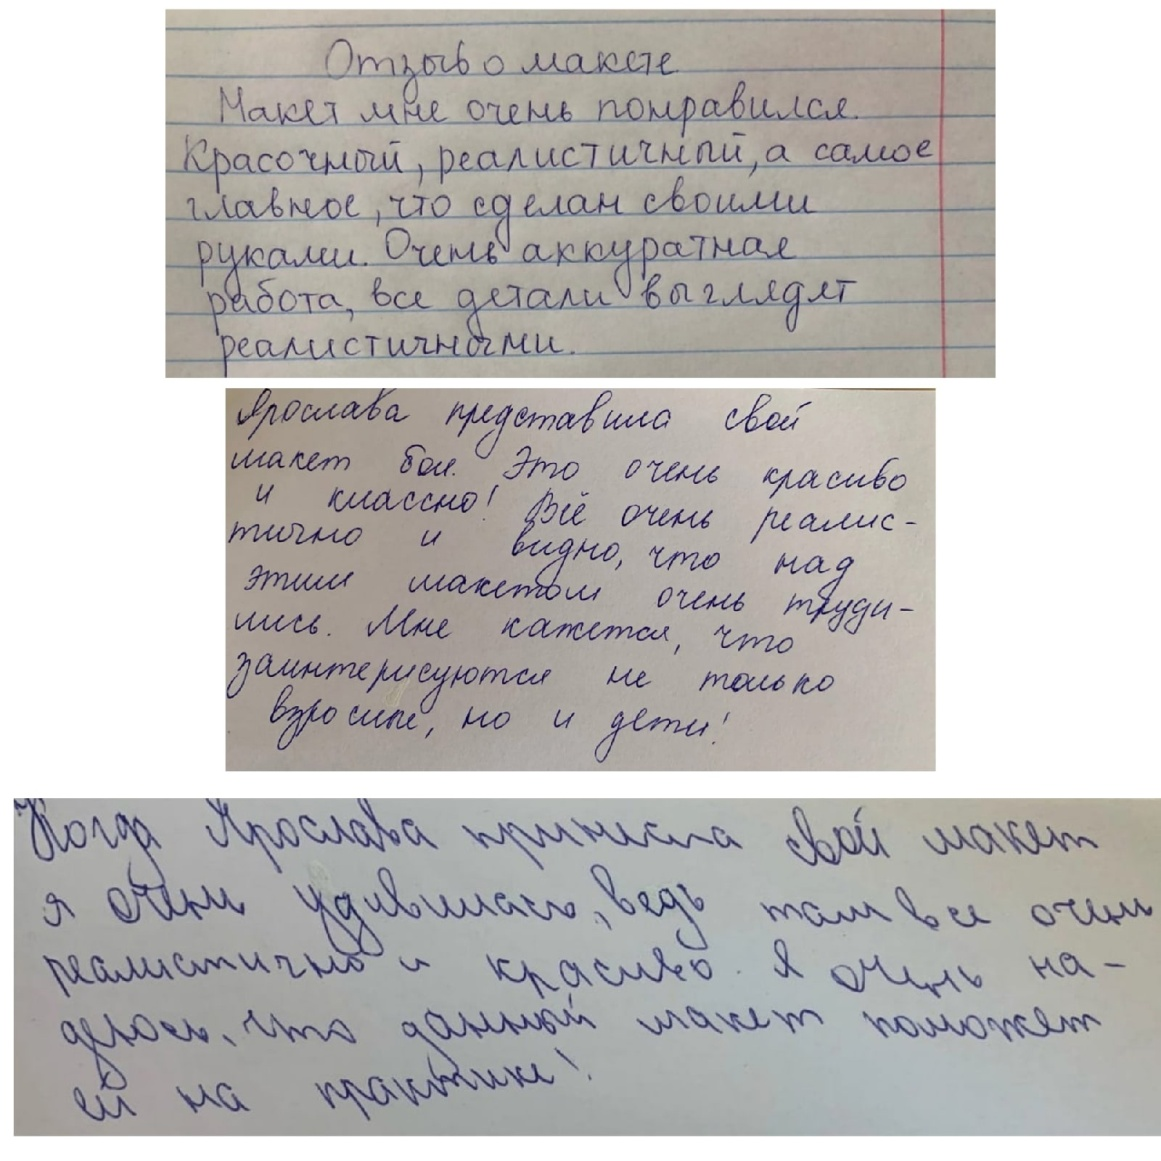 Отзыв о макете
Макет мне очень понравился.
Красочный, реалистичный, а самое
главное, что сделан своими
руками. Очень аккуратная
работа, все детали выглядят
реалистичными.
Ярослава представила свой
макет боя. Это очень красиво
и классно! Всё очень реалис-
тично и видно, что над
этим макетом очень труди-
лись. Мне кажется, что
заинтерисуются не только
взрослые, но и дети!
Когда Ярослава принесла свой макет
я очень удивилась, ведь там все очень
реалистично и красиво. Я очень на-
деюсь, что данный макет поможет
ей на практике!